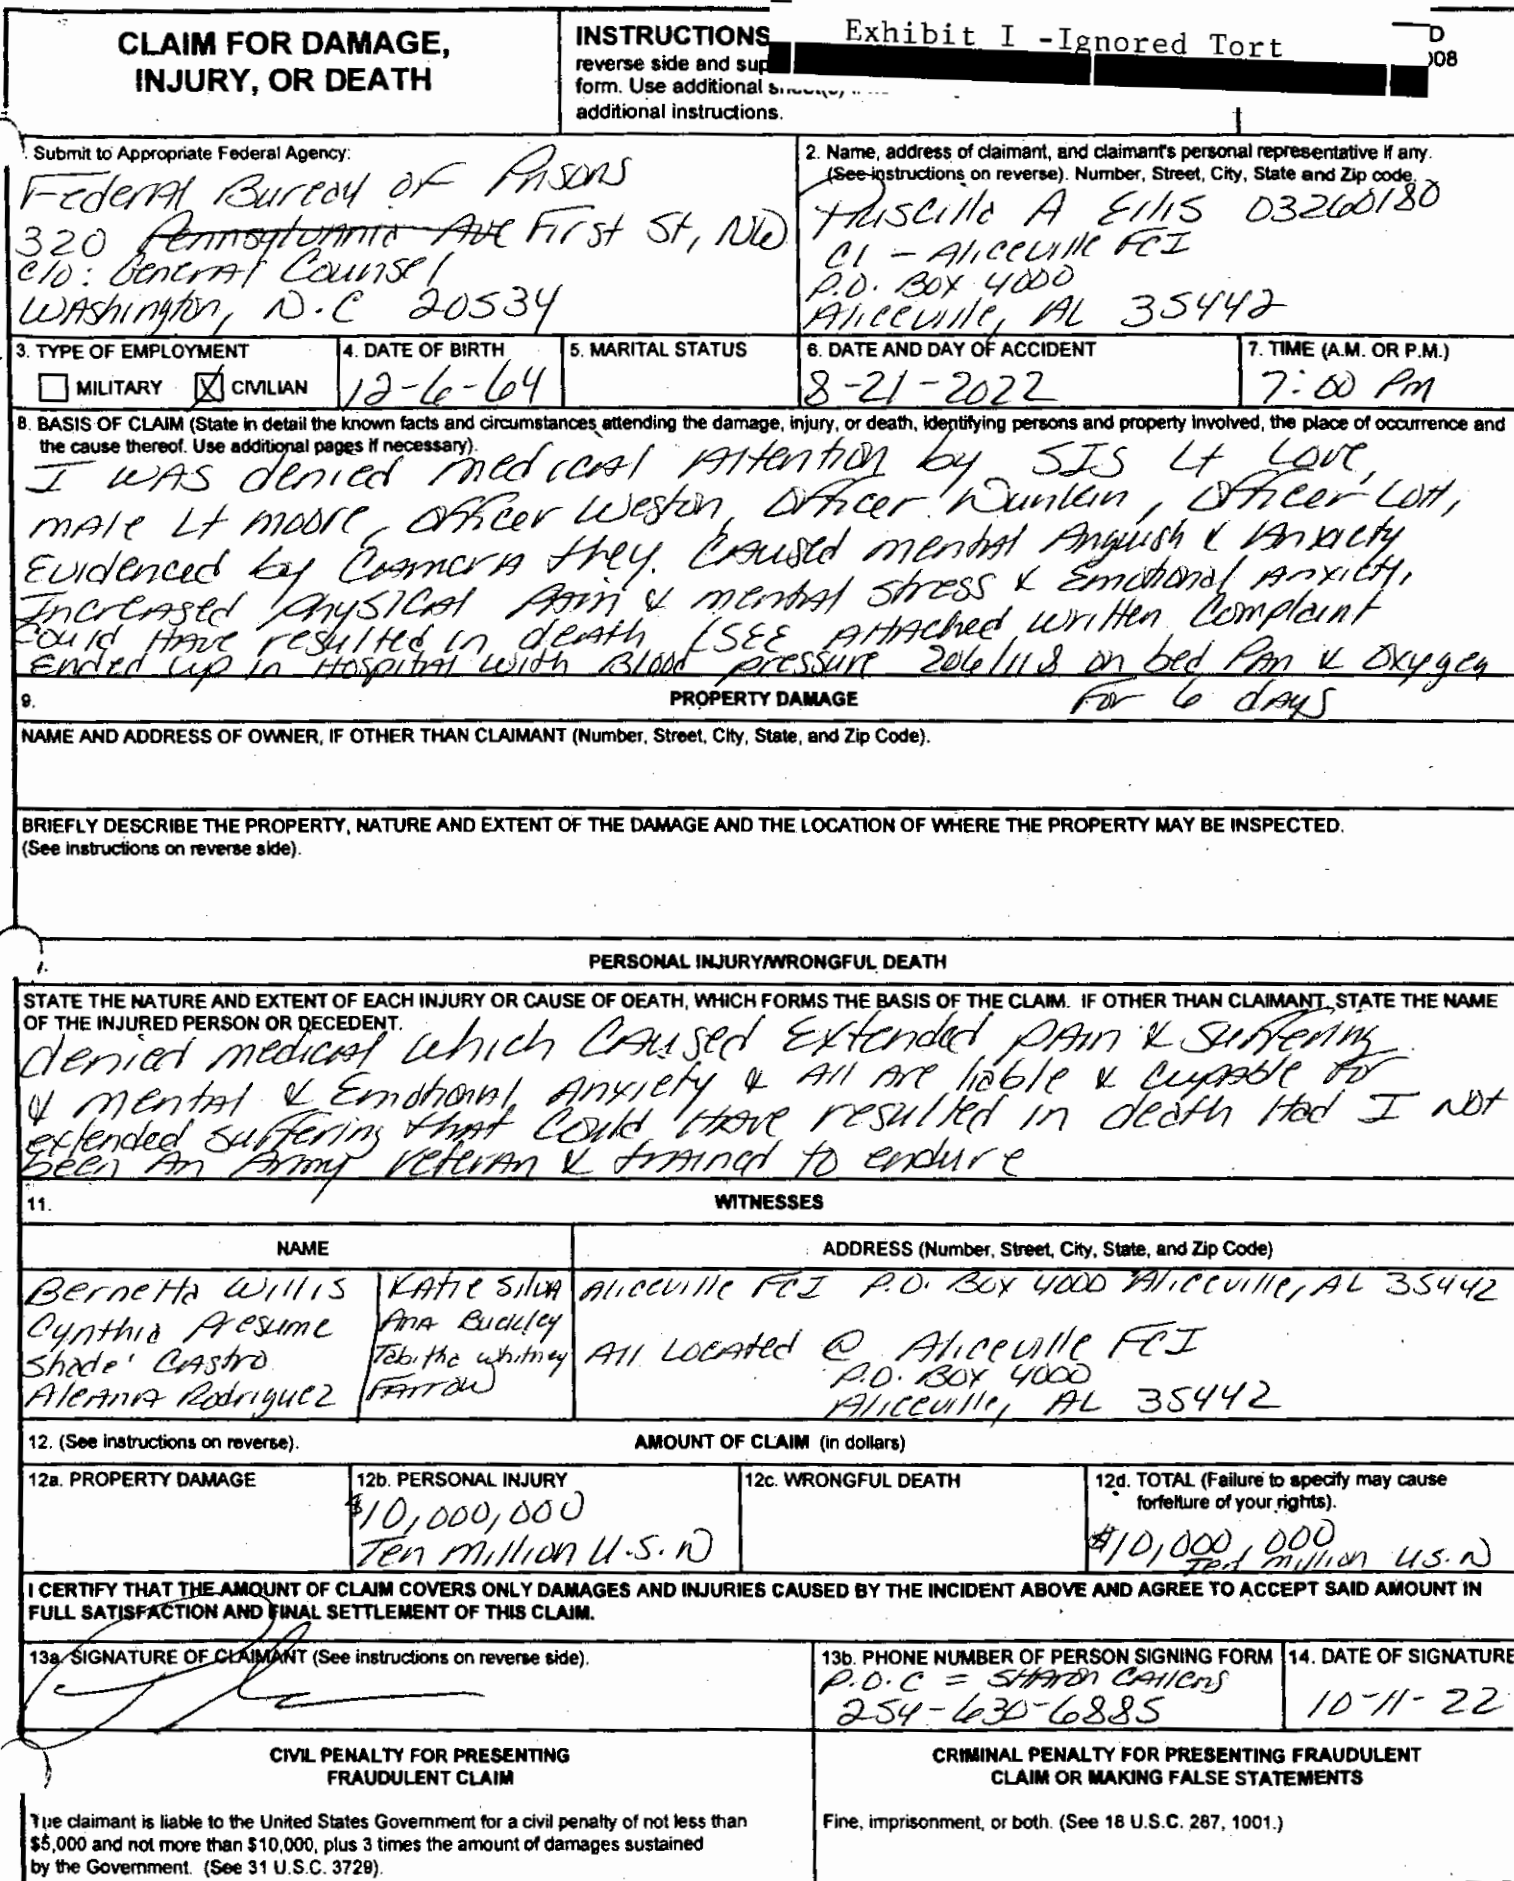 CLAIM FOR DAMAGE,
INJURY, OR DEATH
INSTRUCTIONS
reverse side and sup
form. Use additional
additional instructions.
Exhibit I -Ignored Tort
D
008
1. Submit to Appropriate Federal Agency:
Federal Bureau of Prisons
320 Pennsylvannia Ave First St, NW
c/o: General Counsel
Washington, D.C 20534
2. Name, address of claimant, and claimant's personal representative if any.
(See instructions on reverse). Number, Street, City, State and Zip code.
Priscilla A Ellis 03260180
C1 - Aliceville FCI
P.O. Box 4000
Aliceville, AL 35442
3. TYPE OF EMPLOYMENT
MILITARY X CIVILIAN
4. DATE OF BIRTH
12-6-64
5. MARITAL STATUS
6. DATE AND DAY OF ACCIDENT
8-21-2022
7. TIME (A.M. OR P.M.)
7:00 Pm
8. BASIS OF CLAIM (State in detail the known facts and circumstances attending the damage, injury, or death, identifying persons and property involved, the place of occurrence and
the cause thereof. Use additional pages if necessary).
I was denied medical Attention by SIS Lt Love,
male Lt moore, Officer Weston, Officer Dunkin, Officer Lott,
Evidenced by Camera they. Caused mental Anguish & Anxiety
Increased Physical Pain & mental stress & Emotional Anxiety,
Could Have resulted in death (SEE Attached written Complaint
Ended up in Hospital with Blood pressure 206/118 on bed Pan & Oxygen
For 6 days
9. PROPERTY DAMAGE
NAME AND ADDRESS OF OWNER, IF OTHER THAN CLAIMANT (Number, Street, City, State, and Zip Code).
BRIEFLY DESCRIBE THE PROPERTY, NATURE AND EXTENT OF THE DAMAGE AND THE LOCATION OF WHERE THE PROPERTY MAY BE INSPECTED.
(See instructions on reverse side).
PERSONAL INJURY/WRONGFUL DEATH
STATE THE NATURE AND EXTENT OF EACH INJURY OR CAUSE OF DEATH, WHICH FORMS THE BASIS OF THE CLAIM. IF OTHER THAN CLAIMANT, STATE THE NAME
OF THE INJURED PERSON OR DECEDENT.
denied medical which Caused Extended pain & suffering
& mental & Emotional Anxiety & All Are liable & Cupable for
extended suffering that Could Have resulted in death Had I Not
been An Army veteran & trained to endure
11. WITNESSES
NAME
ADDRESS (Number, Street, City, State, and Zip Code)
Bernetta Willis Katie Silva Aliceville FCI P.O. Box 4000 Aliceville, AL 35442
Cynthia Presume Ana Buckley
Shade' Castro Tabitha Whitney All Located @ Aliceville FCI
Aleana Rodriguez Farrow P.O. Box 4000
Aliceville, AL 35442
12. (See instructions on reverse). AMOUNT OF CLAIM (in dollars)
12a. PROPERTY DAMAGE
12b. PERSONAL INJURY
$10,000,000
Ten million U.S.D
12c. WRONGFUL DEATH
12d. TOTAL (Failure to specify may cause
forfeiture of your rights).
$10,000,000
Ten million U.S.D
I CERTIFY THAT THE AMOUNT OF CLAIM COVERS ONLY DAMAGES AND INJURIES CAUSED BY THE INCIDENT ABOVE AND AGREE TO ACCEPT SAID AMOUNT IN
FULL SATISFACTION AND FINAL SETTLEMENT OF THIS CLAIM.
13a. SIGNATURE OF CLAIMANT (See instructions on reverse side).
13b. PHONE NUMBER OF PERSON SIGNING FORM
P.O.C = Sharon Callens
254-630-6885
14. DATE OF SIGNATURE
10-11-22
CIVIL PENALTY FOR PRESENTING
FRAUDULENT CLAIM
The claimant is liable to the United States Government for a civil penalty of not less than
$5,000 and not more than $10,000, plus 3 times the amount of damages sustained
by the Government. (See 31 U.S.C. 3729).
CRIMINAL PENALTY FOR PRESENTING FRAUDULENT
CLAIM OR MAKING FALSE STATEMENTS
Fine, imprisonment, or both. (See 18 U.S.C. 287, 1001.)